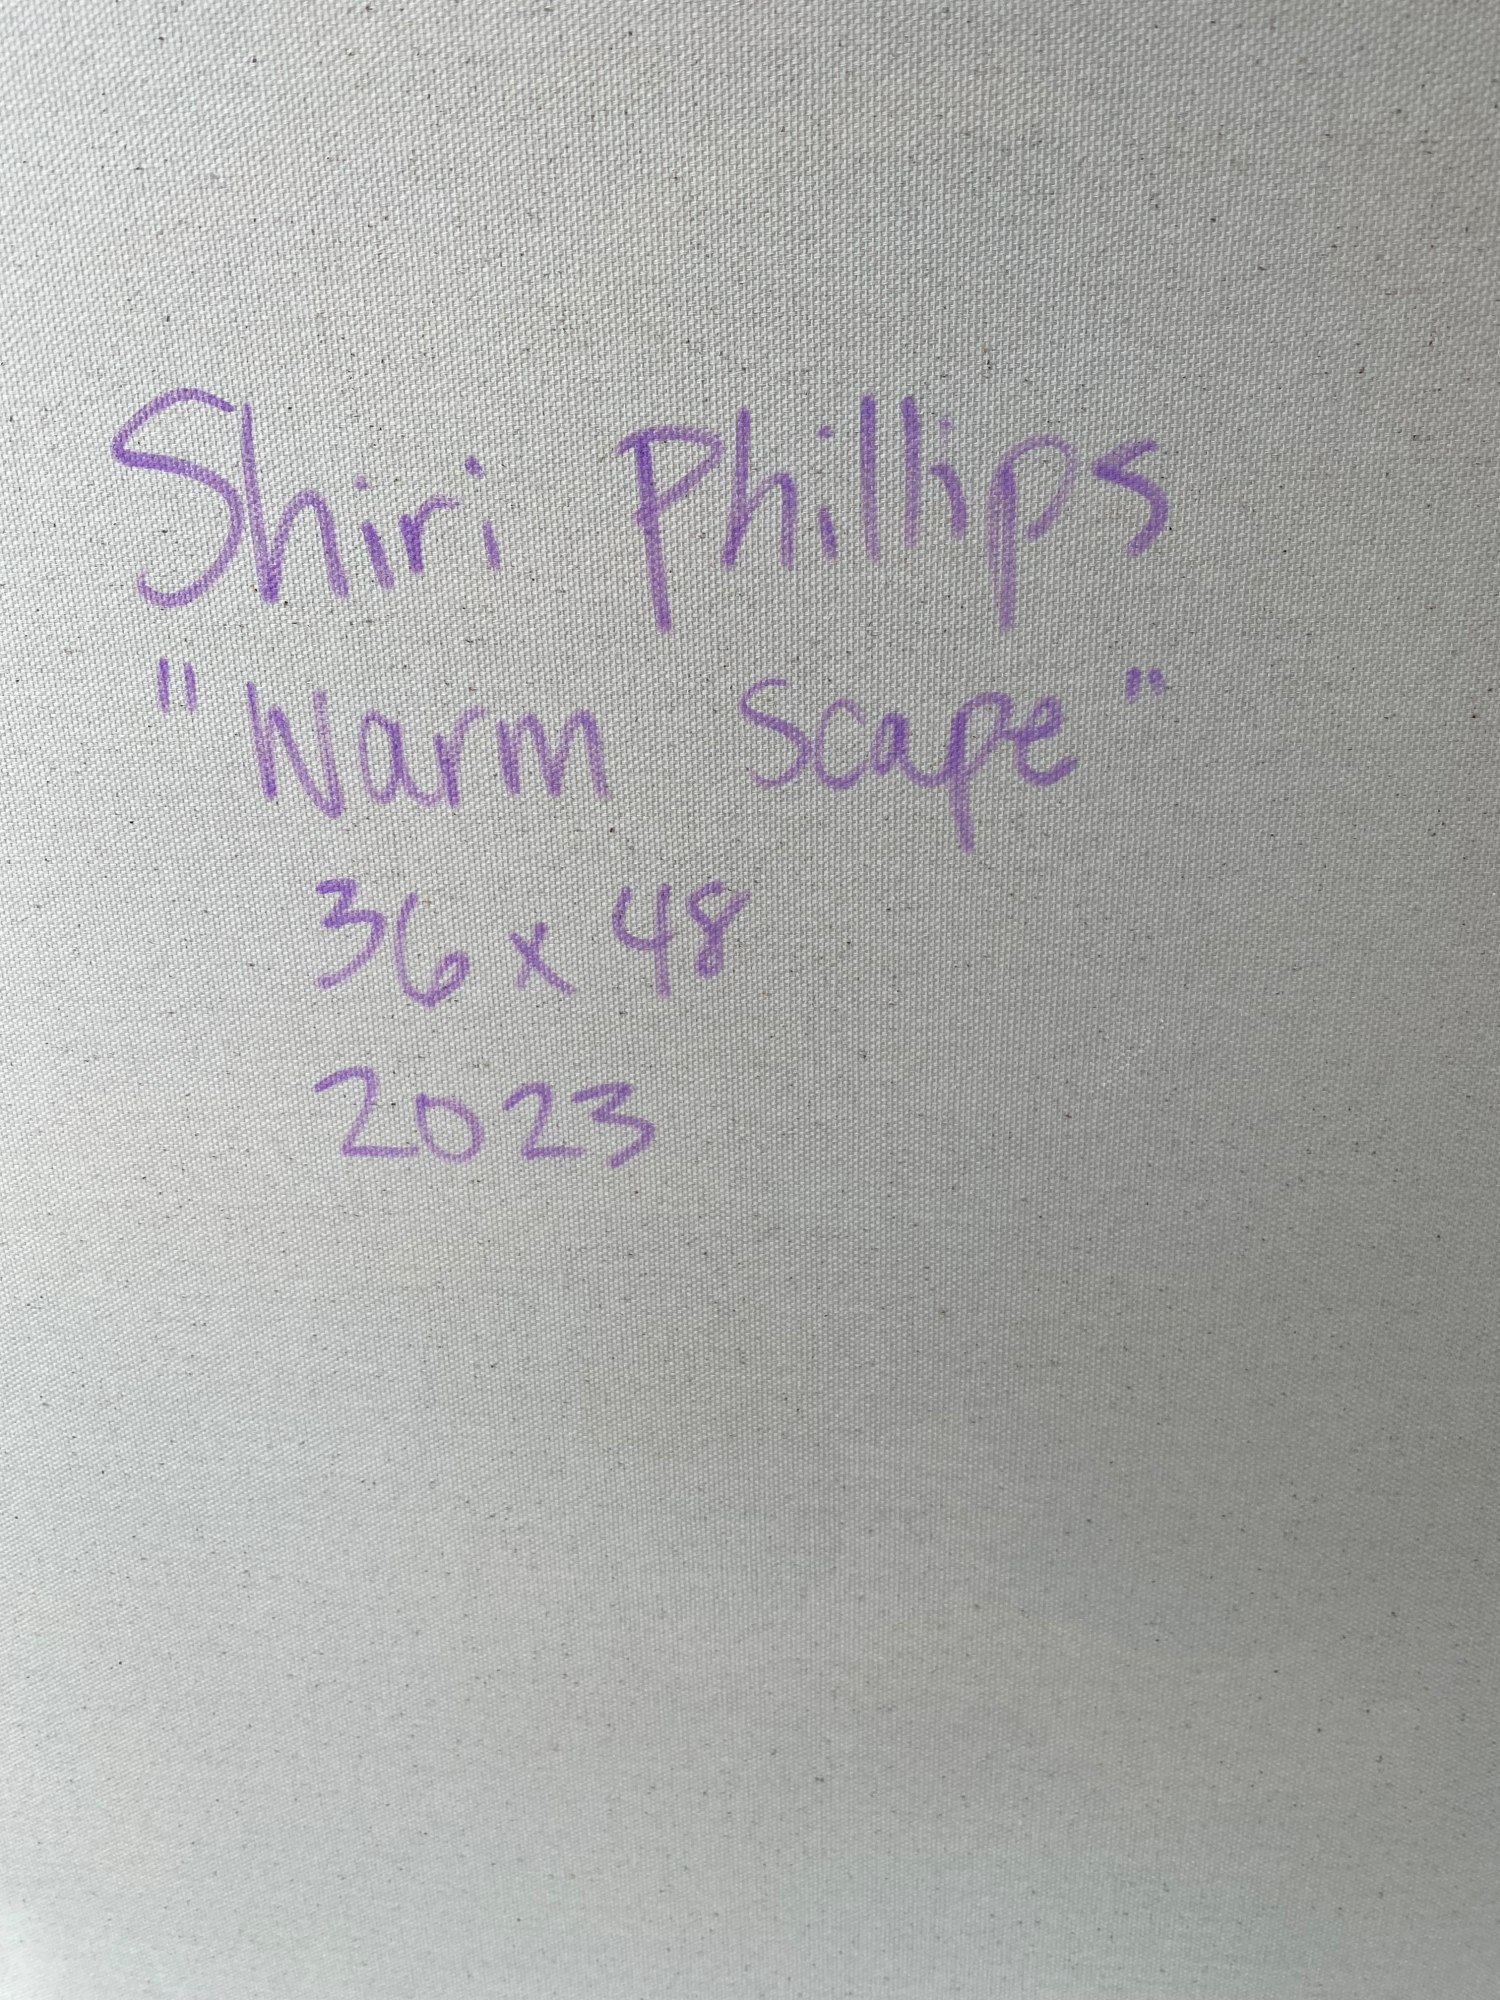 Shiri Phillips
"Warm Scape"
36 x 48
2023